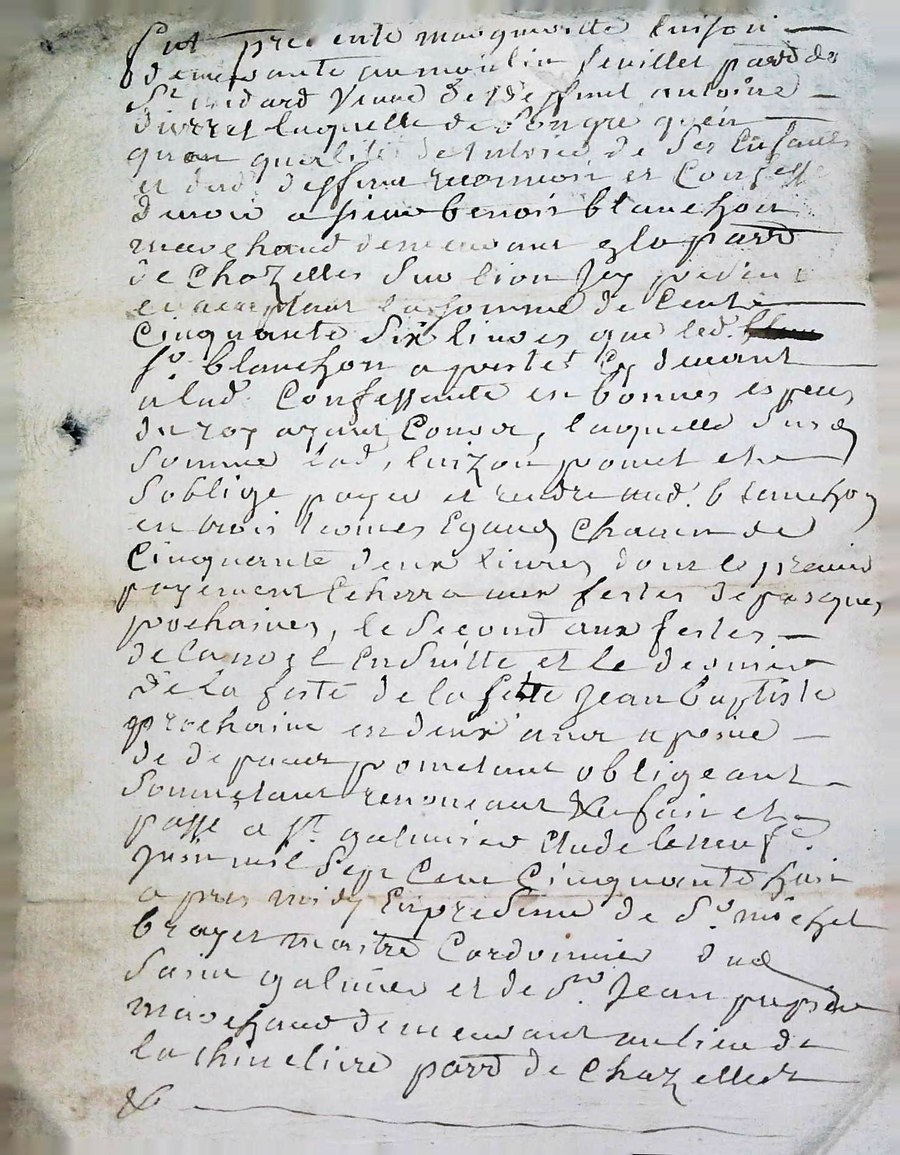 fut presente margueritte luison
demeurante au moulin feuillet parr. de
St medard veuve de deffunt antoine
laquelle de son gré
qu'en qualité de tutrice de ses enfants
et dud. deffunt reconnoit et confesse
devoir a sieur benoit blanchon
marchand demeurant a la parr.
de Chazelles sur lion icy present
et acceptant la somme de cente
cinquante six livres que led.
sr. blanchon a prestet cy devant
a lad. confessante en bonnes especes
du roy ayant cours, laquelle susd.
somme lad. luizon promet et
s'oblige payer et rendre aud. blanchon
en trois termes egaux chacun de
cinquante deux livres dont le premier
payement echerra aux festes de pasques
prochaines, le second aux festes
de la noel ensuitte et le dernier
de la feste de la fette jean baptiste
prochaine en deux ans a peine
de depans prometant obligeant
soumetant renonceant &c fait et
passé a st. galmier etude le neufe.
juin mil sept cent cinquante huit
apres midy en presence de sr. michel
brayet maitre cordonnier dud.
saint galmier et de sr. jean
marchand demeurant au lieu de
la thimeliere parr. de chazelles
&c